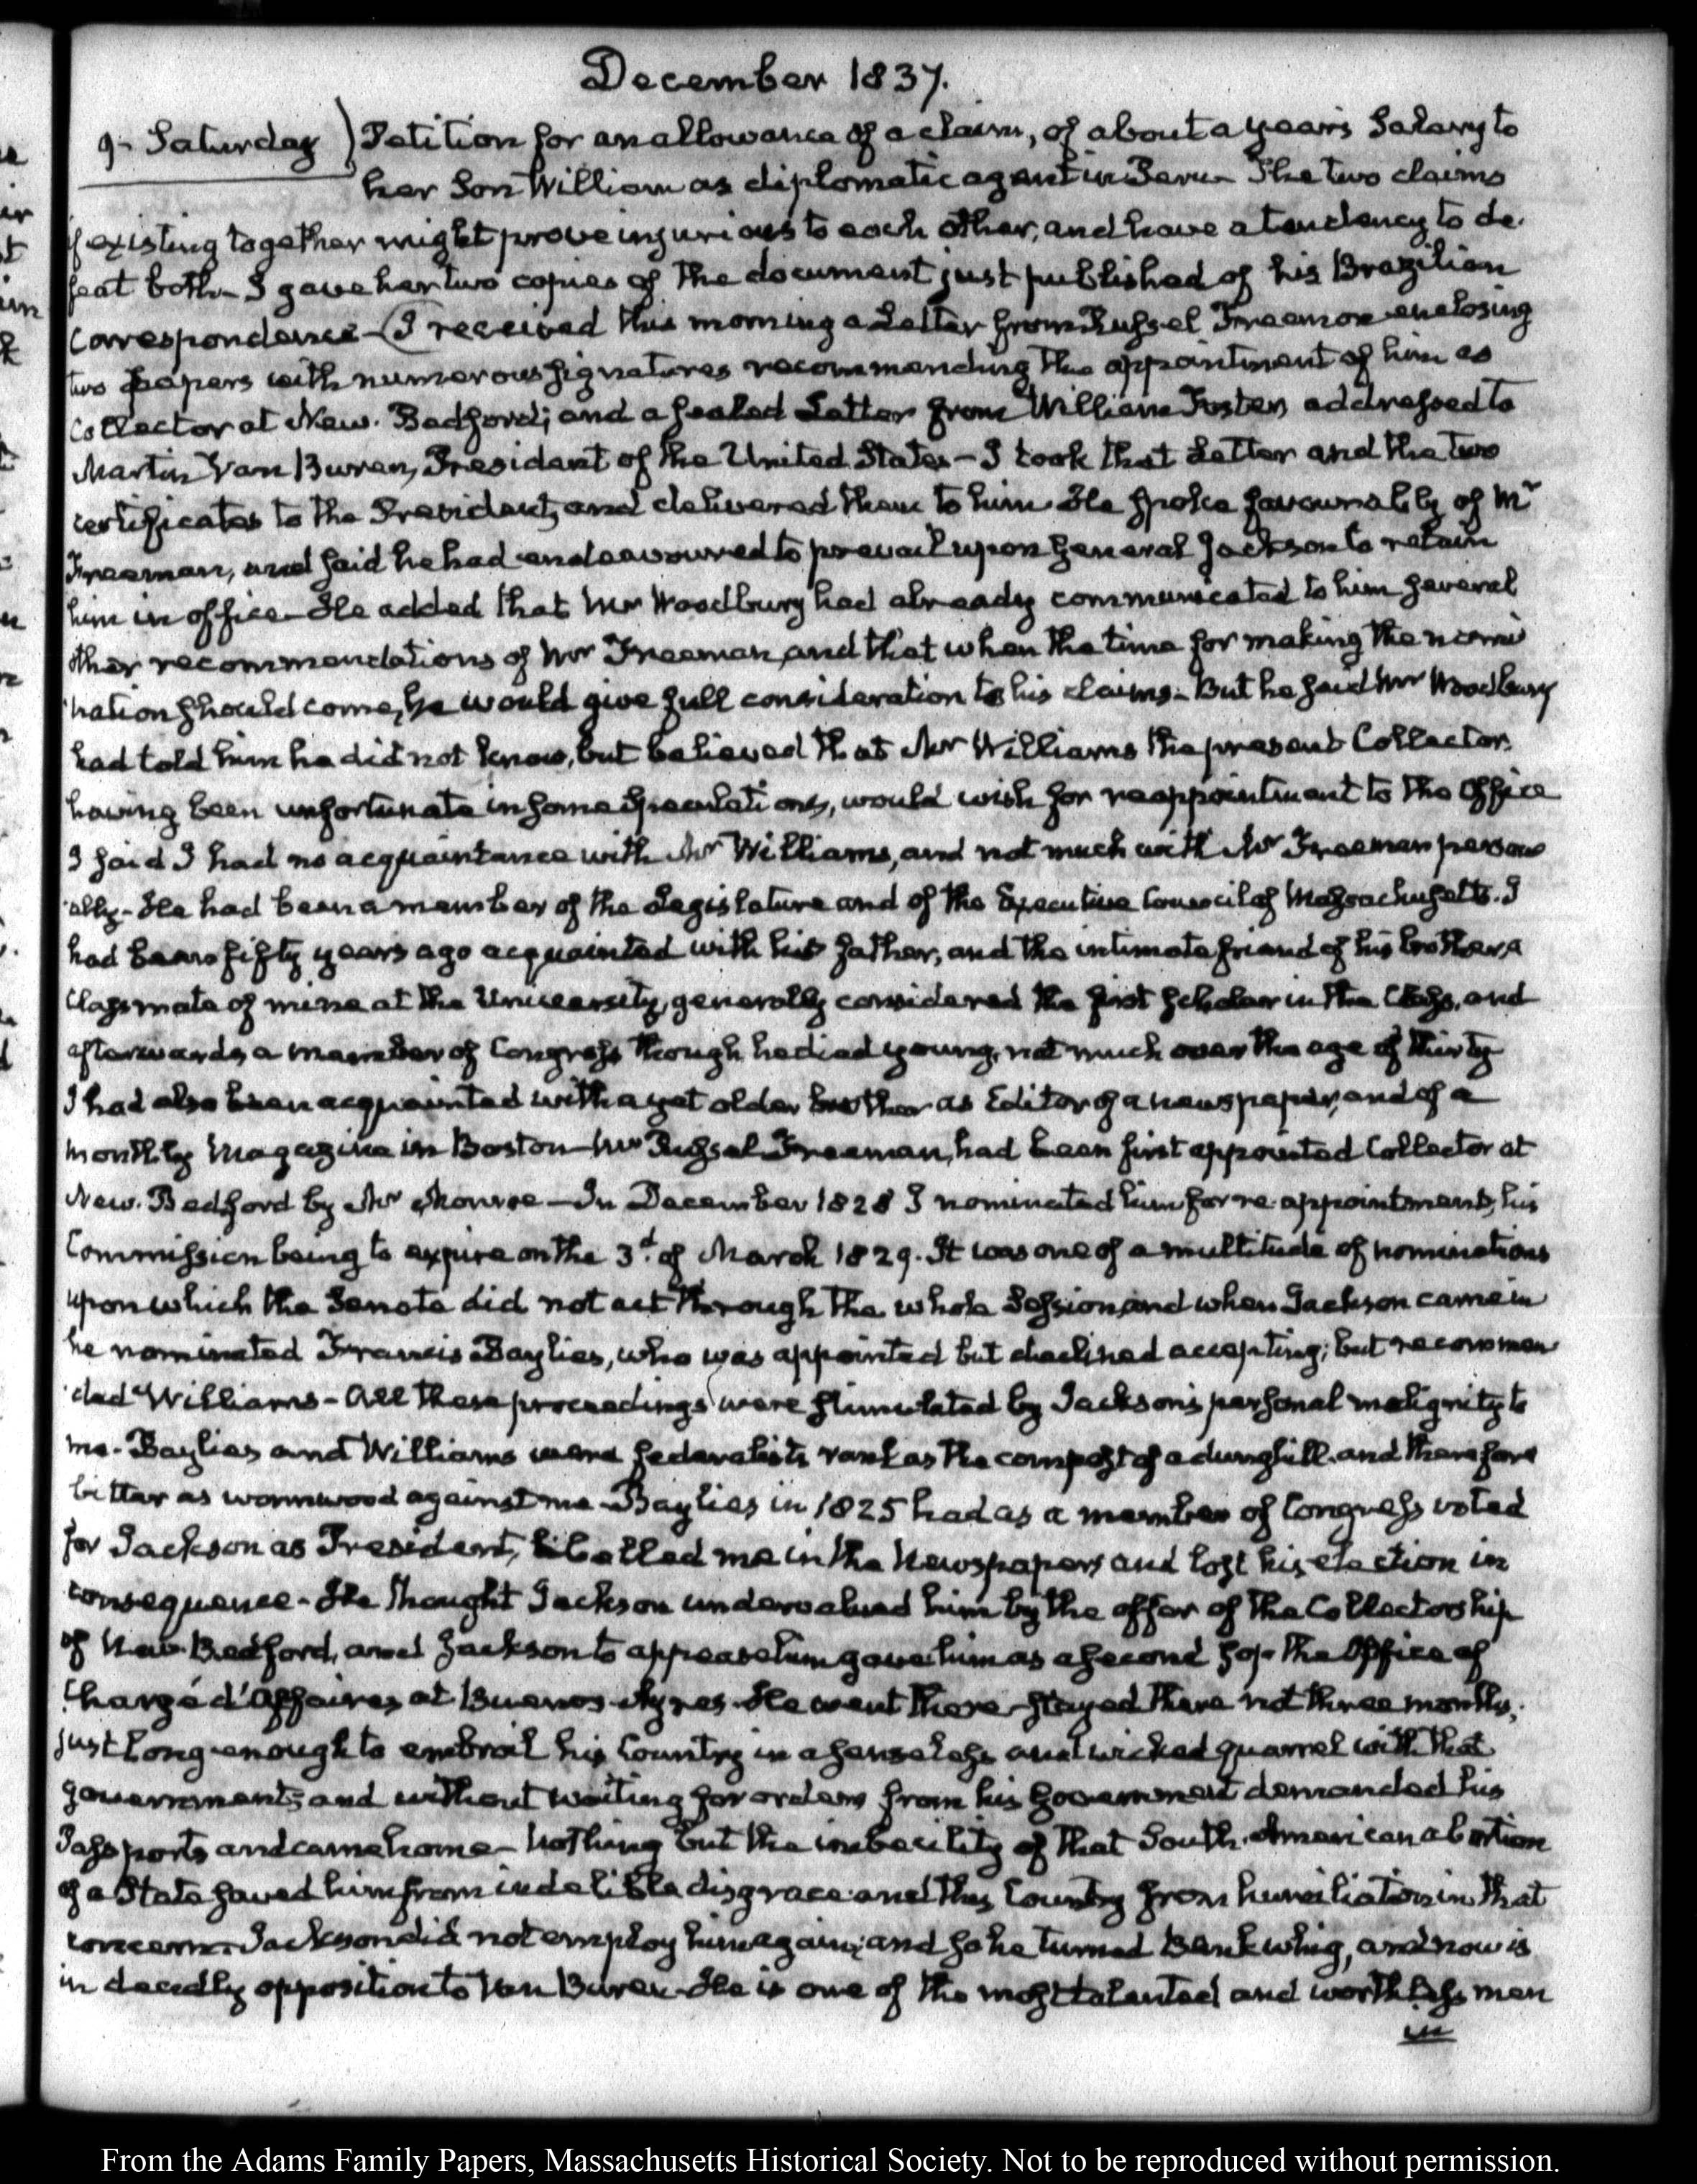 December 1837.
9- Saturday) Petition for an allowance of a claim, of about a years Salary to
her Son William as diplomatic agent in Peru - The two claims
if existing together might prove injurious to each other, and have a tendency to de-
feat both - I gave her two copies of the document just published of his Brazilian
Correspondence - (I received this morning a Letter from Russel Freeman enclosing
two papers with numerous signatures recommending the appointment of him as
Collector at New-Bedford; and a sealed Letter from William Foster, addressed to
Martin Van Buren, President of the United States - I took that Letter and the two
certificates to the President, and delivered them to him. He spoke favourably of Mr
Freeman, and said he had endeavoured to prevail upon General Jackson to retain
him in office - He added that Mr Woodbury had already communicated to him several
other recommendations of Mr Freeman, and that when the time for making the nomi
nation should come, he would give full consideration to his claims - But he said Mr Woodbury
had told him he did not know, but believed that Mr Williams the present Collector,
having been unfortunate in some speculations, would wish for reappointment to the Office
I said I had no acquaintance with Mr Williams, and not much with Mr Freeman person
ally - He had been a member of the Legislature and of the Executive Council of Massachusetts. I
had been fifty years ago acquainted with his father, and the intimate friend of his brother, a
Classmate of mine at the University, generally considered the first scholar in the Class, and
afterwards, a member of Congress though he died young, not much over the age of thirty
I had also been acquainted with a yet older brother as Editor of a newspaper, and of a
monthly Magazine in Boston - Mr Russel Freeman, had been first appointed Collector at
New-Bedford by Mr Monroe - In December 1828 I nominated him for re-appointment, his
Commission being to expire on the 3d. of March 1829. It was one of a multitude of nominations
upon which the Senate did not act through the whole Session, and when Jackson came in
he nominated Francis Baylies, who was appointed but declined accepting; but recommen
ded Williams - All these proceedings were stimulated by Jackson's personal malignity to
me - Baylies and Williams were federalists rank as the compost of a dunghill, and therefore
bitter as wormwood against me - Baylies in 1825 had as a member of Congress voted
for Jackson as President, libelled me in the Newspapers and lost his election in
consequence - He thought Jackson undervalued him by the offer of the Collectorship
of New-Bedford, and Jackson to appease him gave him as a second sop the Office of
Chargé d'Affaires at Buenos-Ayres. He went there - stayed there not three months,
just long enough to embroil his Country in a senseless and wicked quarrel with that
government; and without waiting for orders from his Government demanded his
Passports and came home - Nothing but the imbecility of that South-American abortion
of a State saved him from indelible disgrace and this Country from humiliation in that
concern. Jackson did not employ him again; and so he turned Bank whig, and now is
in deadly opposition to Van Buren - He is one of the most talented and worthless men
in
From the Adams Family Papers, Massachusetts Historical Society. Not to be reproduced without permission.